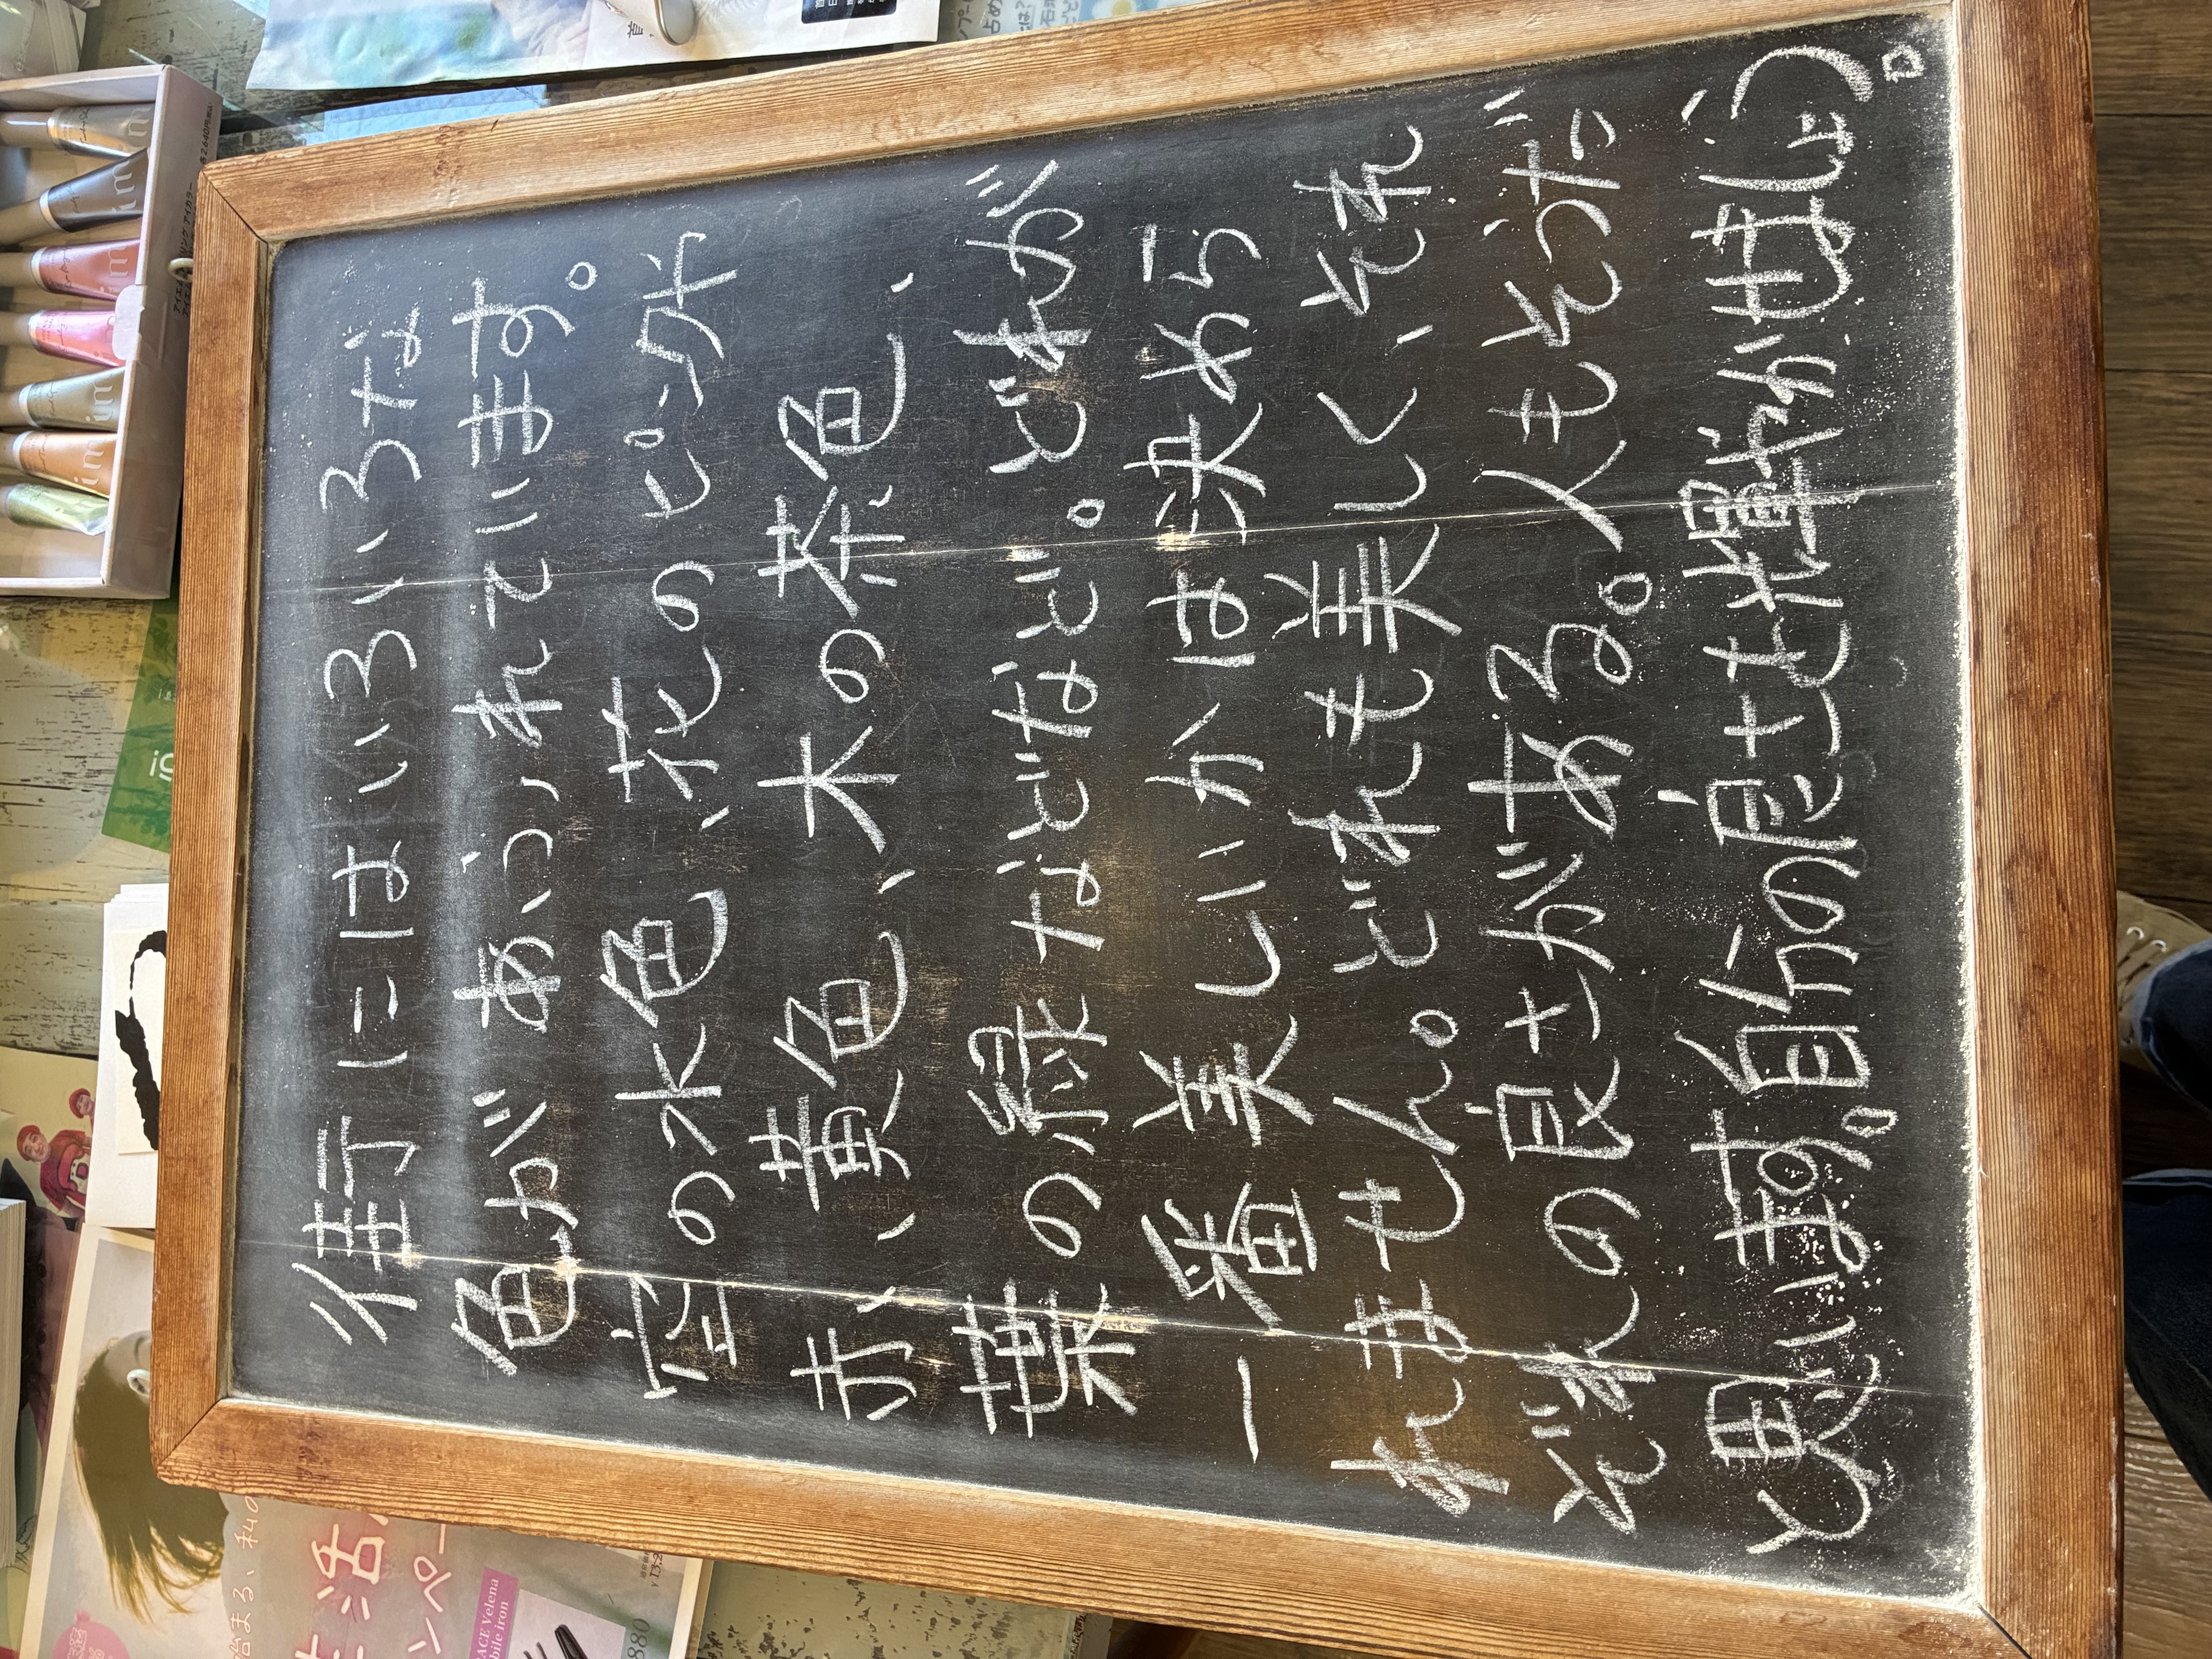 街にはいろいろな
色があふれています。
空の水色、花のピンク
赤、黄色、木の茶色、
葉の緑などなど。どれが
一番美しいかは決めら
れません。どれも美しく、それ
ぞれの良さがある。人もそうだ
と思います。自分の良さを輝かせましょう。
ACE Velena
bile iron